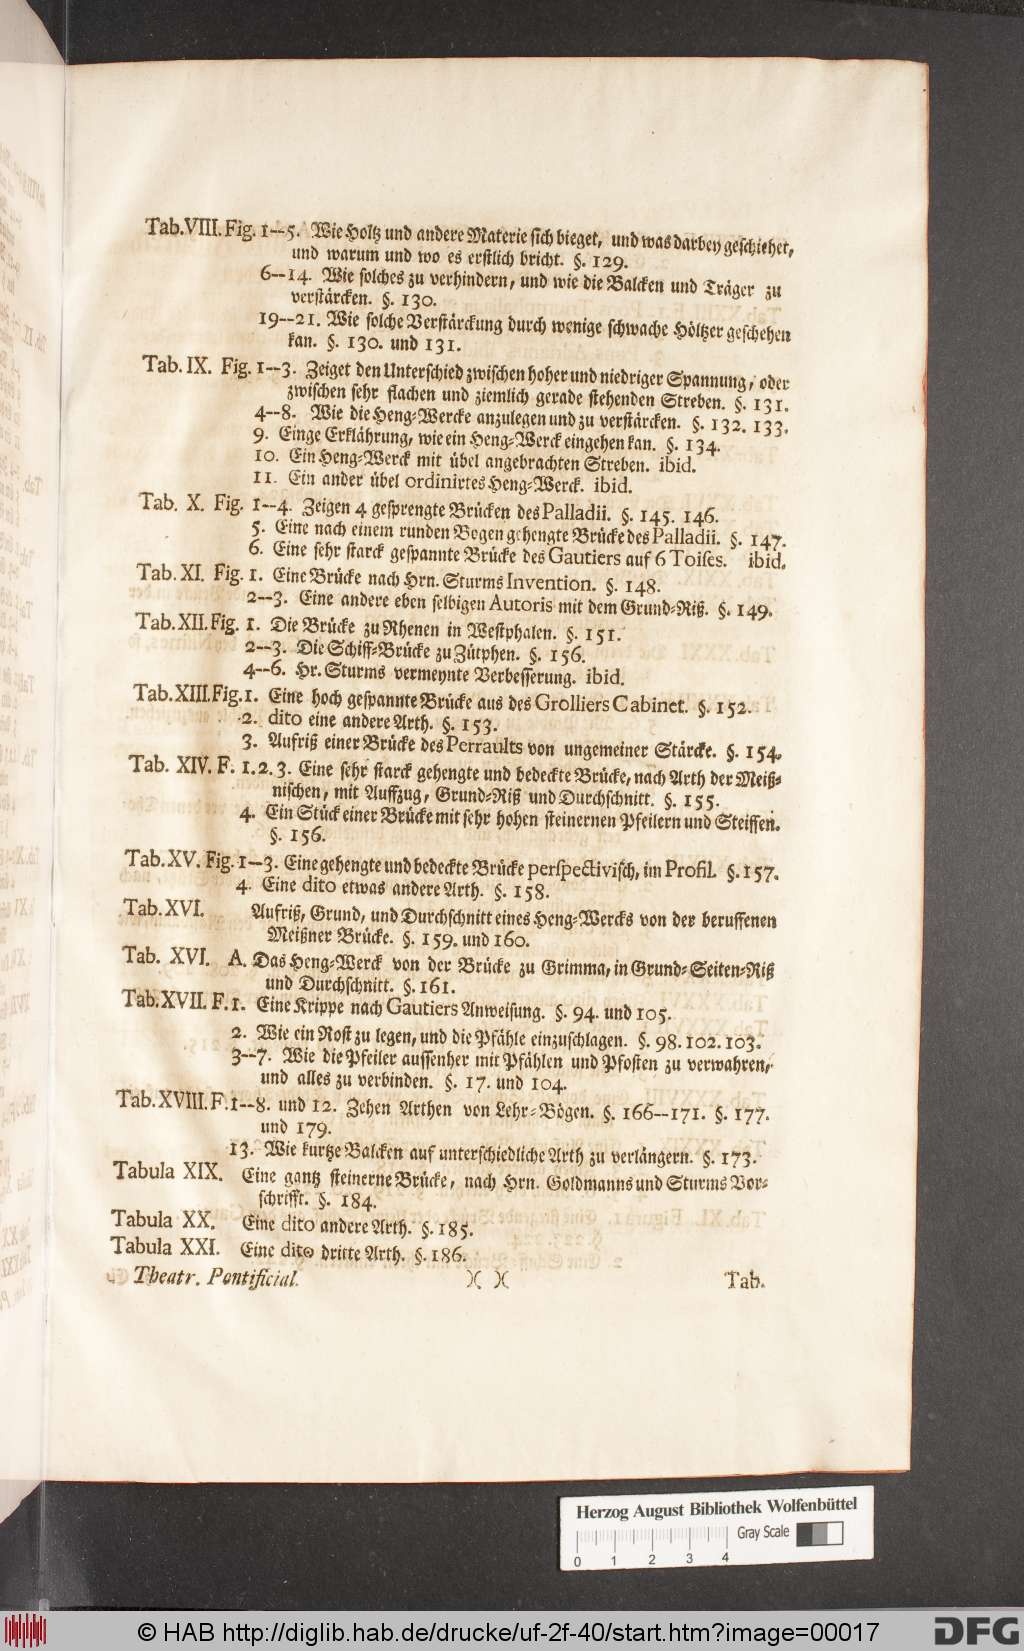 Tab.VIII. Fig. 1--5. Wie Holtz und andere Materie sich bieget, und was darbey geschiehet,
und warum und wo es erstlich bricht. §. 129.
6--14. Wie solches zu verhindern, und wie die Balcken und Träger zu
verstärcken. §. 130.
19--21. Wie solche Verstärckung durch wenige schwache Höltzer geschehen
kan. §. 130. und 131.
Tab. IX. Fig. 1--3. Zeiget den Unterschied zwischen hoher und niedriger Spannung, oder
zwischen sehr flachen und ziemlich gerade stehenden Streben. §. 131.
4--8. Wie die Heng-Wercke anzulegen und zu verstärcken. §. 132. 133.
9. Einge Erklährung, wie ein Heng-Werck eingehen kan. §. 134.
10. Ein Heng-Werck mit übel angebrachten Streben. ibid.
11. Ein ander übel ordinirtes Heng-Werck. ibid.
Tab. X. Fig. 1--4. Zeigen 4 gesprengte Brücken des Palladii. §. 145. 146.
5. Eine nach einem runden Bogen gehengte Brücke des Palladii. §. 147.
6. Eine sehr starck gespannte Brücke des Gautiers auf 6 Toises. ibid.
Tab. XI. Fig. 1. Eine Brücke nach Hrn. Sturms Invention. §. 148.
2--3. Eine andere eben selbigen Autoris mit dem Grund-Riß. §. 149.
Tab. XII. Fig. 1. Die Brücke zu Rhenen in Westphalen. §. 151.
2--3. Die Schiff-Brücke zu Zütphen. §. 156.
4--6. Hr. Sturms vermeynte Verbesserung. ibid.
Tab. XIII. Fig. 1. Eine hoch gespannte Brücke aus des Grolliers Cabinet. §. 152.
2. dito eine andere Arth. §. 153.
3. Aufriß einer Brücke des Perraults von ungemeiner Stärcke. §. 154.
Tab. XIV. F. 1. 2. 3. Eine sehr starck gehengte und bedeckte Brücke, nach Arth der Meiß-
nischen, mit Auffzug, Grund-Riß und Durchschnitt. §. 155.
4. Ein Stück einer Brücke mit sehr hohen steinernen Pfeilern und Steiffen.
§. 156.
Tab. XV. Fig. 1--3. Eine gehengte und bedeckte Brücke perspectivisch, im Profil. §. 157.
4. Eine dito etwas andere Arth. §. 158.
Tab. XVI. Aufriß, Grund, und Durchschnitt eines Heng-Wercks von der beruffenen
Meißner Brücke. §. 159. und 160.
Tab. XVI. A. Das Heng-Werck von der Brücke zu Grimma, in Grund- Seiten-Riß
und Durchschnitt. §. 161.
Tab. XVII. F. 1. Eine Krippe nach Gautiers Anweisung. §. 94. und 105.
2. Wie ein Rost zu legen, und die Pfähle einzuschlagen. §. 98. 102. 103.
3--7. Wie die Pfeiler aussenher mit Pfählen und Pfosten zu verwahren,
und alles zu verbinden. §. 17. und 104.
Tab. XVIII. F. 1--8. und 12. Zehen Arthen von Lehr-Bögen. §. 166--171. §. 177.
und 179.
13. Wie kurtze Balcken auf unterschiedliche Arth zu verlängern. §. 173.
Tabula XIX. Eine gantz steinerne Brücke, nach Hrn. Goldmanns und Sturms Vor-
schrifft. §. 184.
Tabula XX. Eine dito andere Arth. §. 185.
Tabula XXI. Eine dito dritte Arth. §. 186.
Theatr. Pontificial. )( )( Tab.
Herzog August Bibliothek Wolfenbüttel
Gray Scale
0 1 2 3 4
© HAB http://diglib.hab.de/drucke/uf-2f-40/start.htm?image=00017
DFG